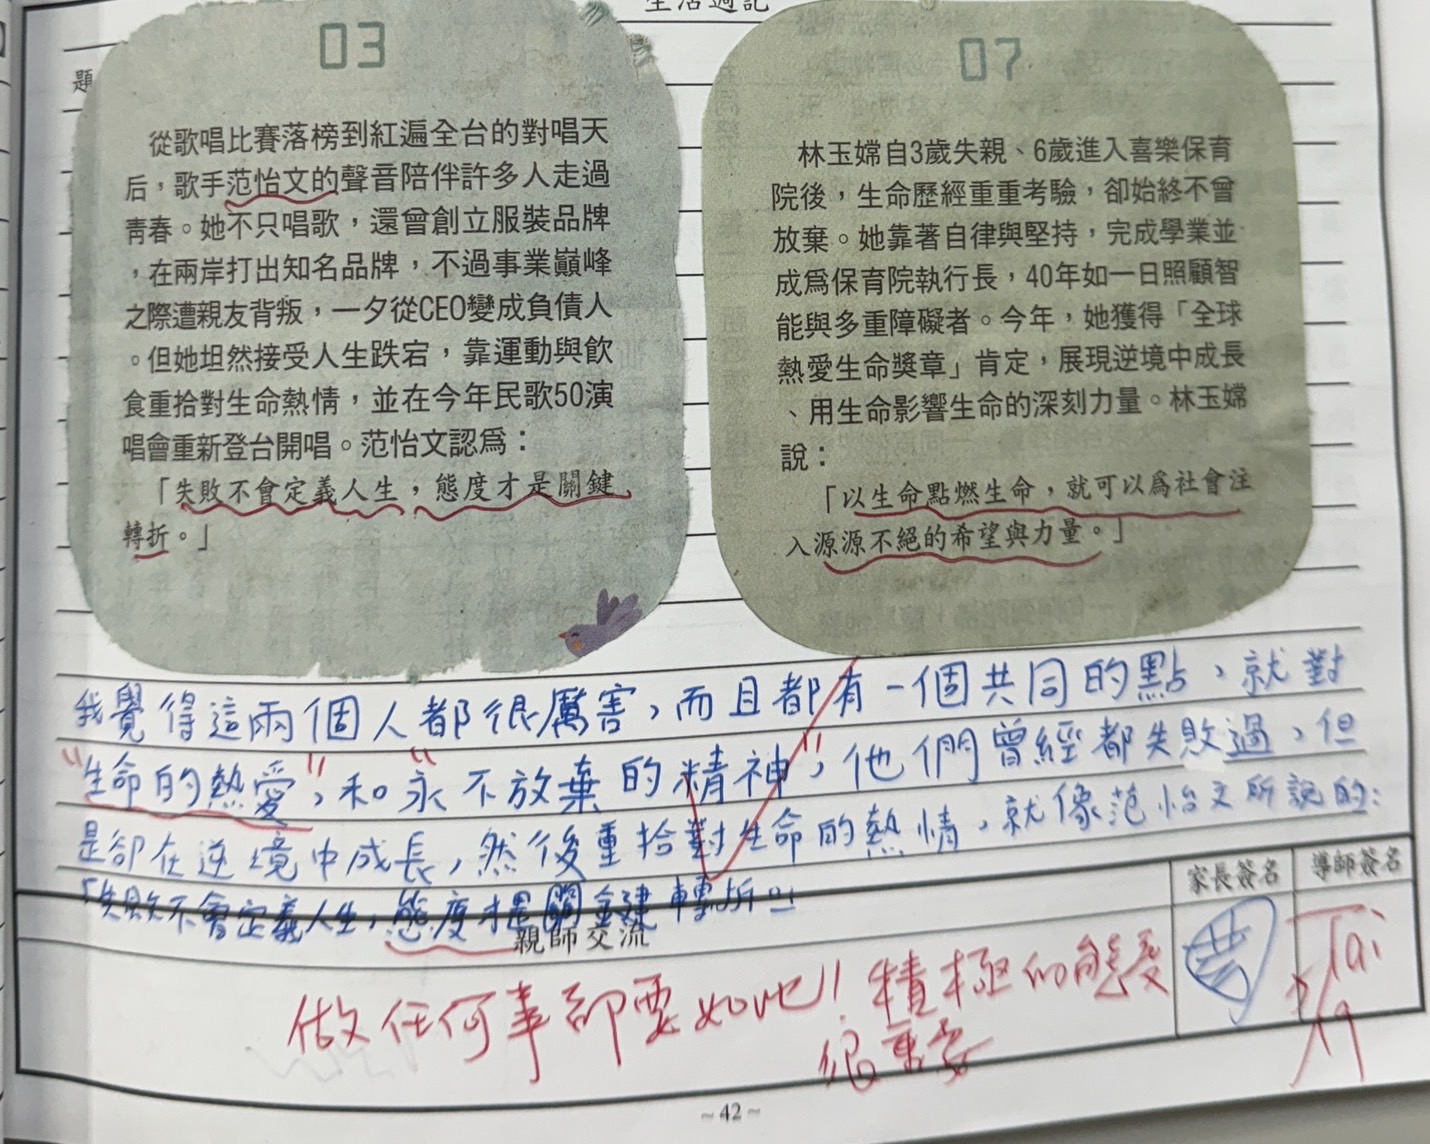 生活週記
題
03
從歌唱比賽落榜到紅遍全台的對唱天
后，歌手范怡文的聲音陪伴許多人走過
青春。她不只唱歌，還曾創立服裝品牌
，在兩岸打出知名品牌，不過事業巔峰
之際遭親友背叛，一夕從CEO變成負債人
。但她坦然接受人生跌宕，靠運動與飲
食重拾對生命熱情，並在今年民歌50演
唱會重新登台開唱。范怡文認為：
「失敗不會定義人生，態度才是關鍵
轉折。」
07
林玉嫦自3歲失親、6歲進入喜樂保育
院後，生命歷經重重考驗，卻始終不曾
放棄。她靠著自律與堅持，完成學業並
成為保育院執行長，40年如一日照顧智
能與多重障礙者。今年，她獲得「全球
熱愛生命獎章」肯定，展現逆境中成長
、用生命影響生命的深刻力量。林玉嫦
說：
「以生命點燃生命，就可以為社會注
入源源不絕的希望與力量。」
我覺得這兩個人都很厲害，而且都有一個共同的點，就對
"生命的熱愛"，和"永不放棄的精神"，他們曾經都失敗過，但
是卻在逆境中成長，然後重拾對生命的熱情，就像范怡文所說的：
「失敗不會定義人生，態度才是關鍵轉折。」
親師交流
家長簽名
導師簽名
做任何事都要如此！積極的態度
很重要
~42~